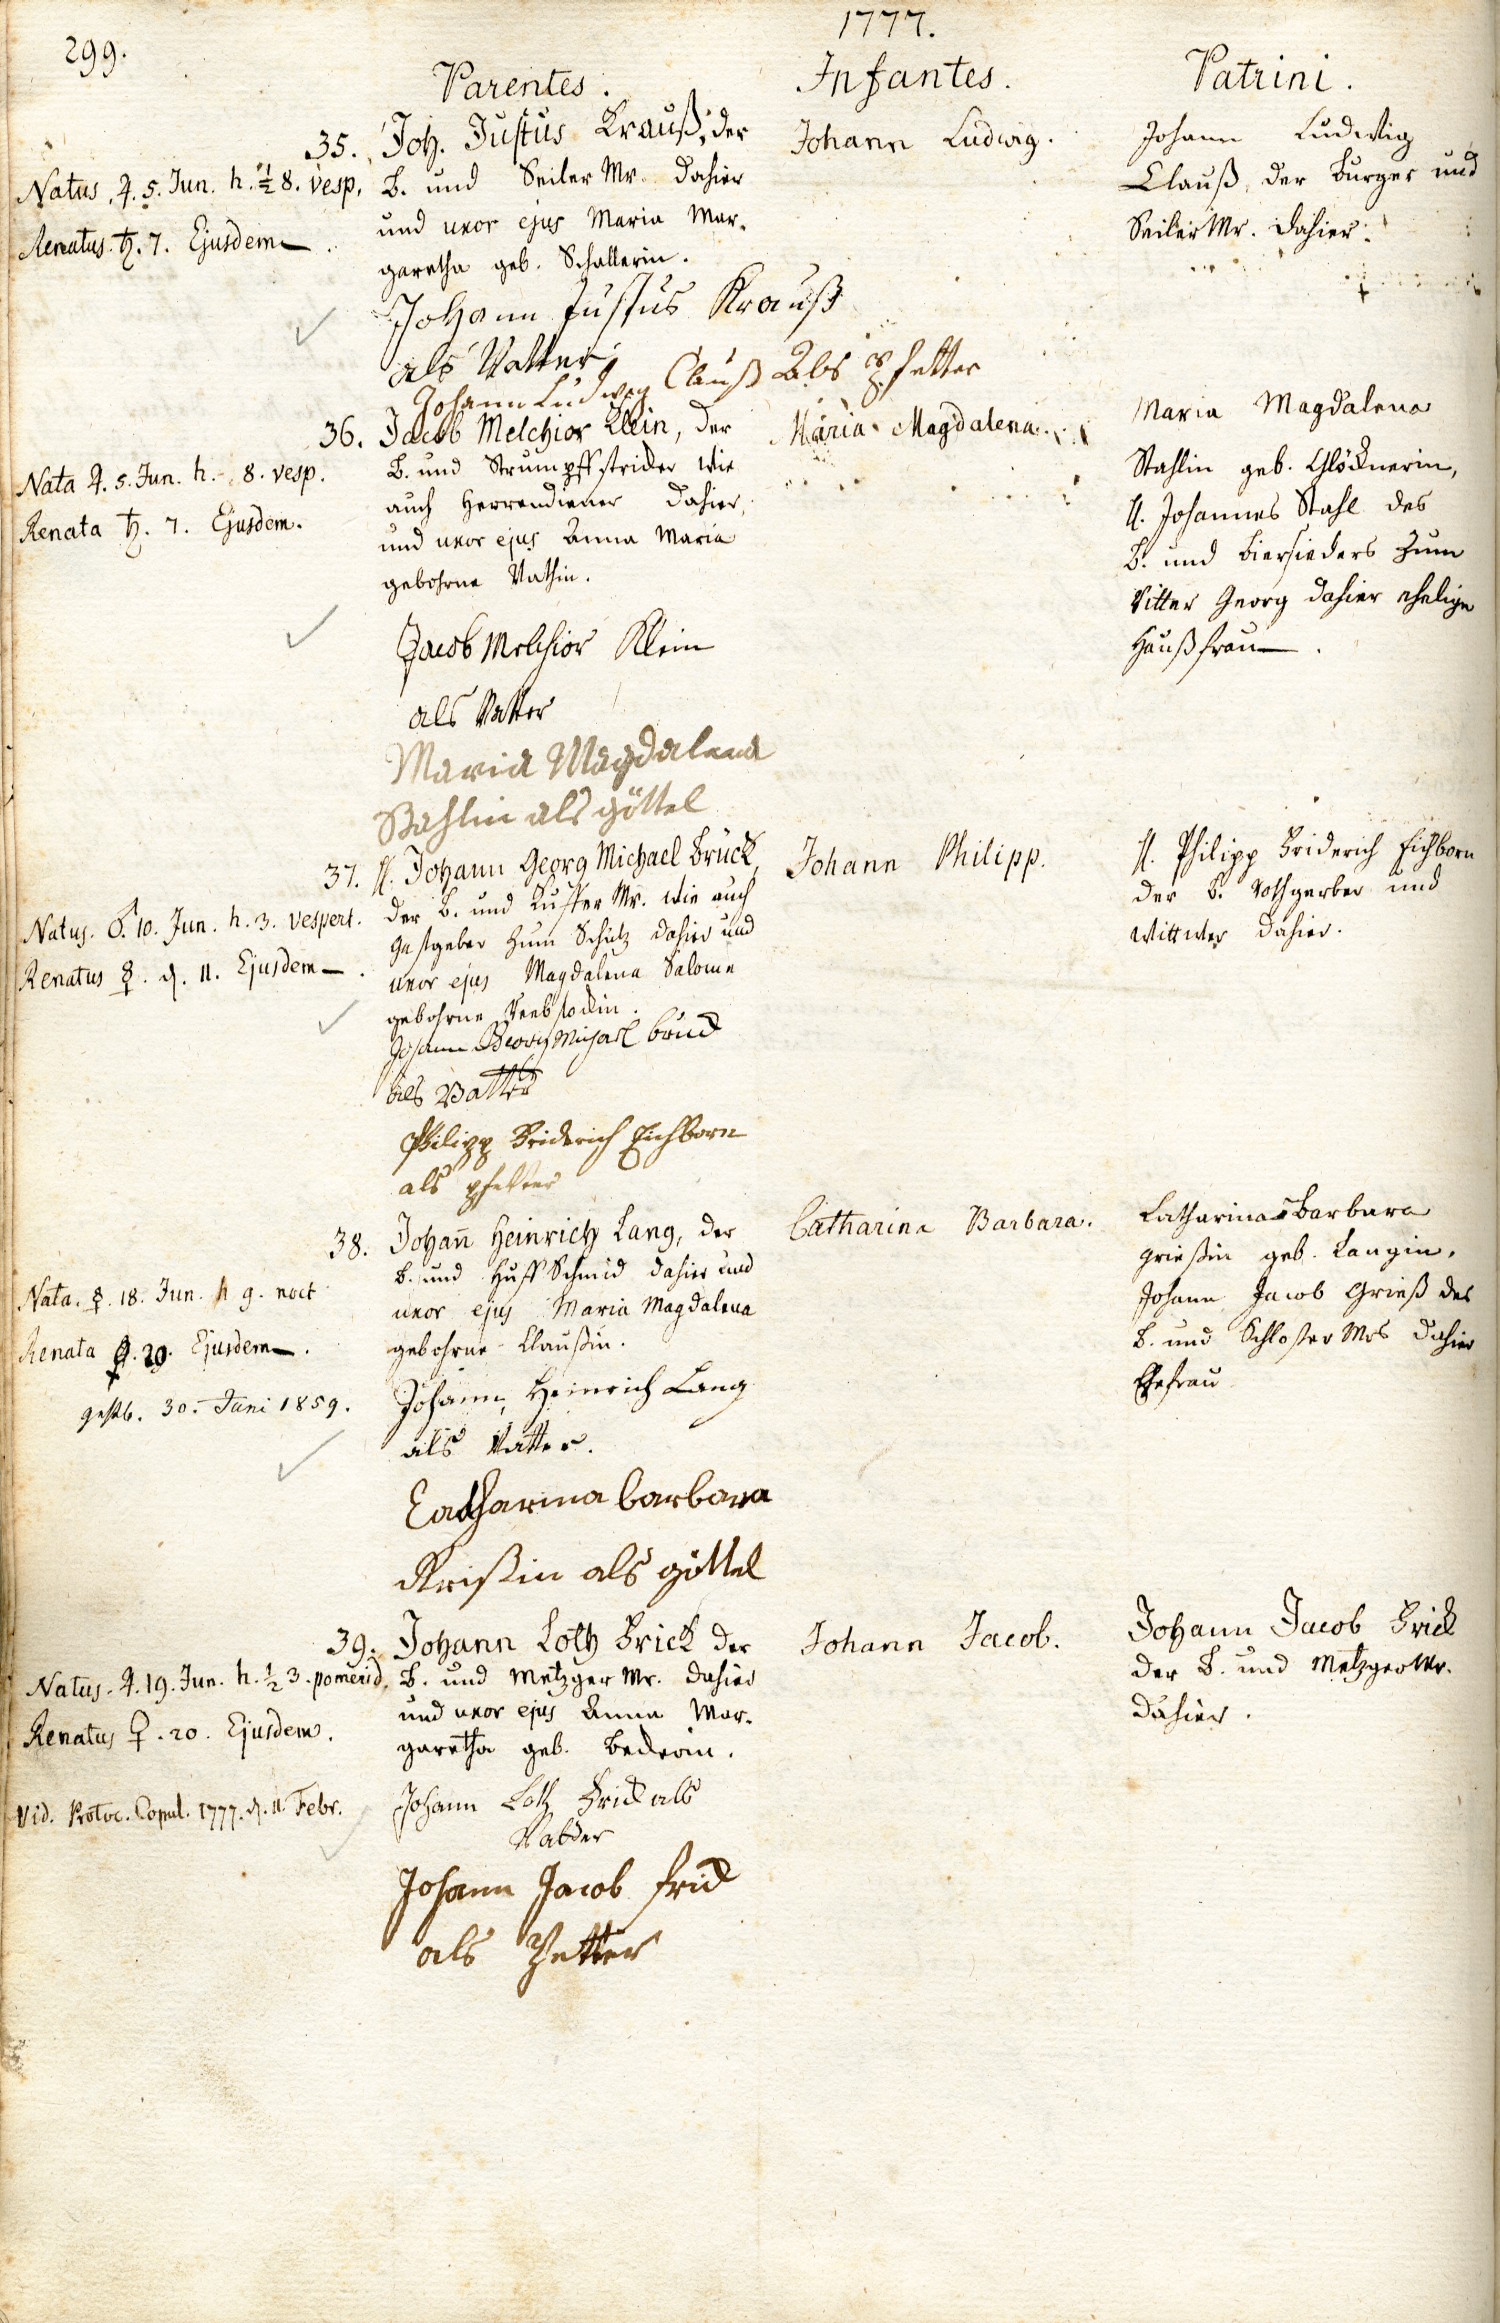 299.
1777.
Parentes.
Infantes.
Patrini.
35.
Natus. ♃. 5. Jun. h. ½ 8. vesp.
Renatus. ♄. 7. Ejusdem.
Joh. Justus Krauß, der
B. und Seiler Mr. dahier
und uxor ejus Maria Mar-
garetha geb. Schallerin.
Johann Justus Krauß
als Vatter
Johann Ludwig Clauß Als Pfetter
Johann Ludwig.
Johann Ludwig
Clauß, der Burger und
Seiler Mr. dahier.
36.
Nata ♃. 5. Jun. h. 8. vesp.
Renata ♄. 7. Ejusdem.
Jacob Melchior Klein, der
B. und Strumpffstricker wie
auch Herrendiener dahier,
und uxor ejus Anna Maria
gebohrne Rathin.
Jacob Melchior Klein
als Vatter
Maria Magdalena
Stahlin als göttel
Maria Magdalena.
Maria Magdalena
Stahlin geb. Glöcknerin,
H. Johannes Stahl des
B. und Biersieders zum
Ritter Georg dahier ehelige
Haußfrau.
37.
Natus. ♂. 10. Jun. h. 3. vespert.
Renatus ☿. d. 11. Ejusdem.
H. Johann Georg Michael Bruck,
der B. und Kuffer Mr. wie auch
Gastgeber zum Schütz dahier und
uxor ejus Magdalena Salome
gebohrne Rebstockin.
Johann Georg Michael bruck
als Vatter
Philipp Friderich Eichborn
als pfetter
Johann Philipp.
H. Philipp Friderich Eichborn
der B. Rothgerber und
Wittwer dahier.
38.
Nata. ☿. 18. Jun. h 9. noct
Renata ♀. 20. Ejusdem.
gestb. 30. Juni 1859.
Johann Heinrich Lang, der
B. und Huff Schmid dahier und
uxor ejus Maria Magdalena
gebohrne Claußin.
Johann Heinrich Lang
als Vatter.
Catharina barbara
Krißin als göttel
Catharina Barbara.
Catharina Barbara
Grießin geb. Langin.
Johann Jacob Grieß des
B. und Schloßer Mrs dahier
Ehefrau
39.
Natus. ♃. 19. Jun. h. ½ 3. pomerid.
Renatus ♀. 20. Ejusdem.
Vid. Protoc. Copul. 1777. d. 11. Febr.
Johann Lotz Frick der
B. und Metzger Mr. dahier
und uxor ejus Anna Mar-
garetha geb. Beckerin.
Johann Lotz Frick als
Vatder
Johann Jacob frick
als Petter
Johann Jacob.
Johann Jacob Frick
der B. und Metzger Mr.
dahier.